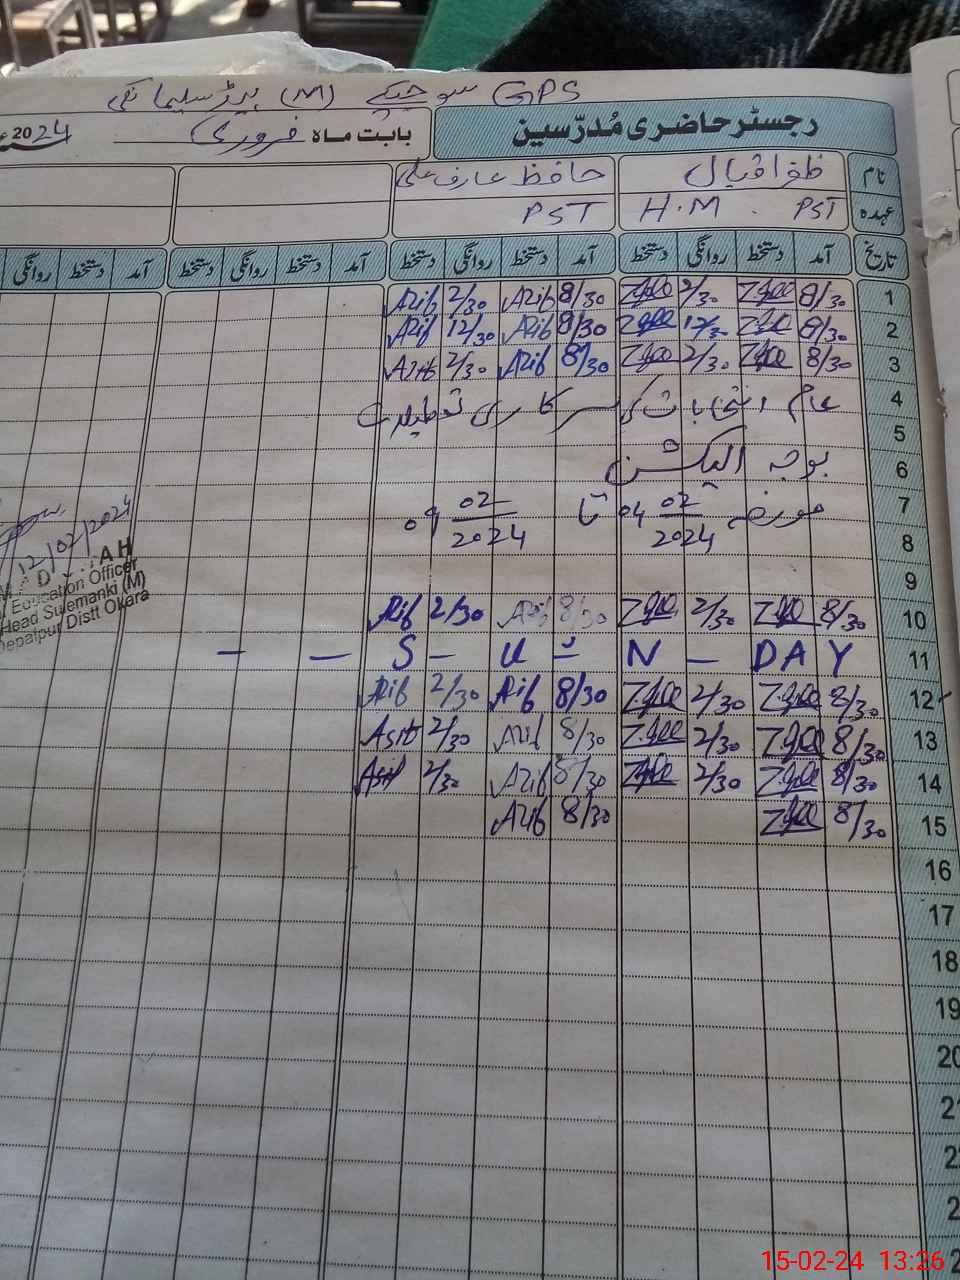 GPS سوجیکے (M) ہیڈ سلیمانکی
رجسٹر حاضری مُدرّسین بابت ماہ فروری 2024
نام ظفر اقبال حافظ عارف علی
عہدہ PST H.M PST
تاریخ آمد دستخط روانگی دستخط آمد دستخط روانگی دستخط آمد دستخط روانگی دستخط آمد دستخط روانگی
1 8/30 2/30 8/30 Arif 2/30 Arif
2 8/30 12/30 8/30 Arif 12/30 Arif
3 8/30 2/30 8/30 Arif 2/30 Arif
4 عام انتخابات کی سرکاری تعطیلات
5
6 بوجہ الیکشن
7 مورخہ 04 02/2024 تا 09 02/2024
8
9
10 8/30 2/30 8/30 Arif 2/30 Arif
11 S - U - N - DAY
12 8/30 2/30 8/30 Arif 2/30 Arif
13 8/30 2/30 8/30 Arif 2/30
14 8/30 2/30 8/30 Arif 2/30
15 8/30 8/30 Arif
16
17
18
19
20
12/02/2024
Education Officer
Head Sulemanki (M)
Depalpur Distt Okara
15-02-24 13:26